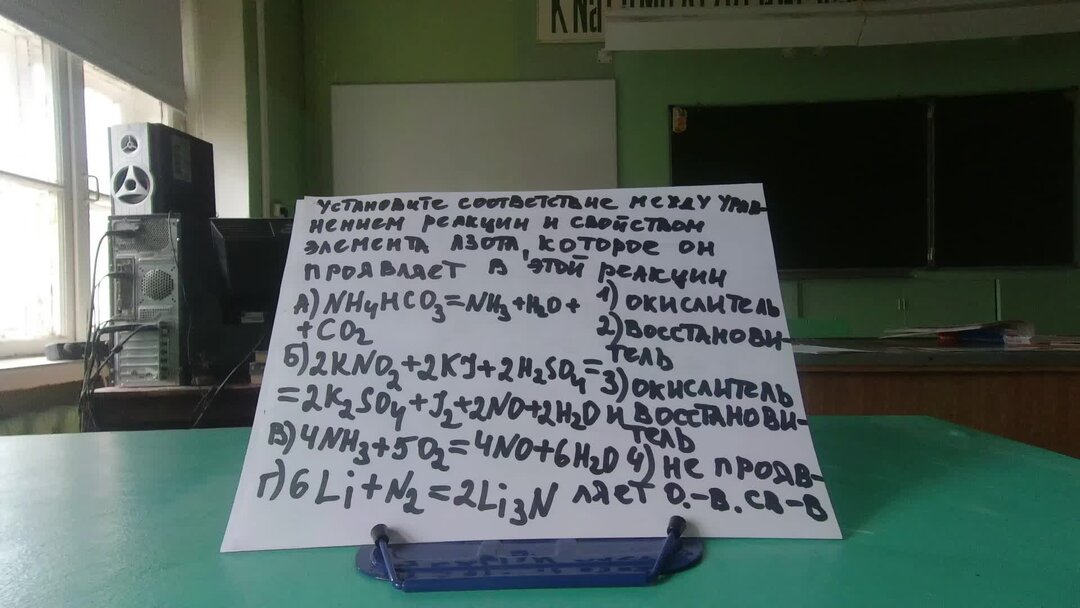 K Na
Установите соответствие между урав-
нением реакции и свойством
элемента азота, которое он
проявляет в этой реакции
А) NH4HCO3 = NH3 + H2O +
+ CO2
Б) 2KNO2 + 2KJ + 2H2SO4 =
= 2K2SO4 + J2 + 2NO + 2H2O
В) 4NH3 + 5O2 = 4NO + 6H2O
Г) 6Li + N2 = 2Li3N
1) окислитель
2) восстанови-
тель
3) окислитель
и восстанови-
тель
4) не прояв-
ляет о.-в. св-в